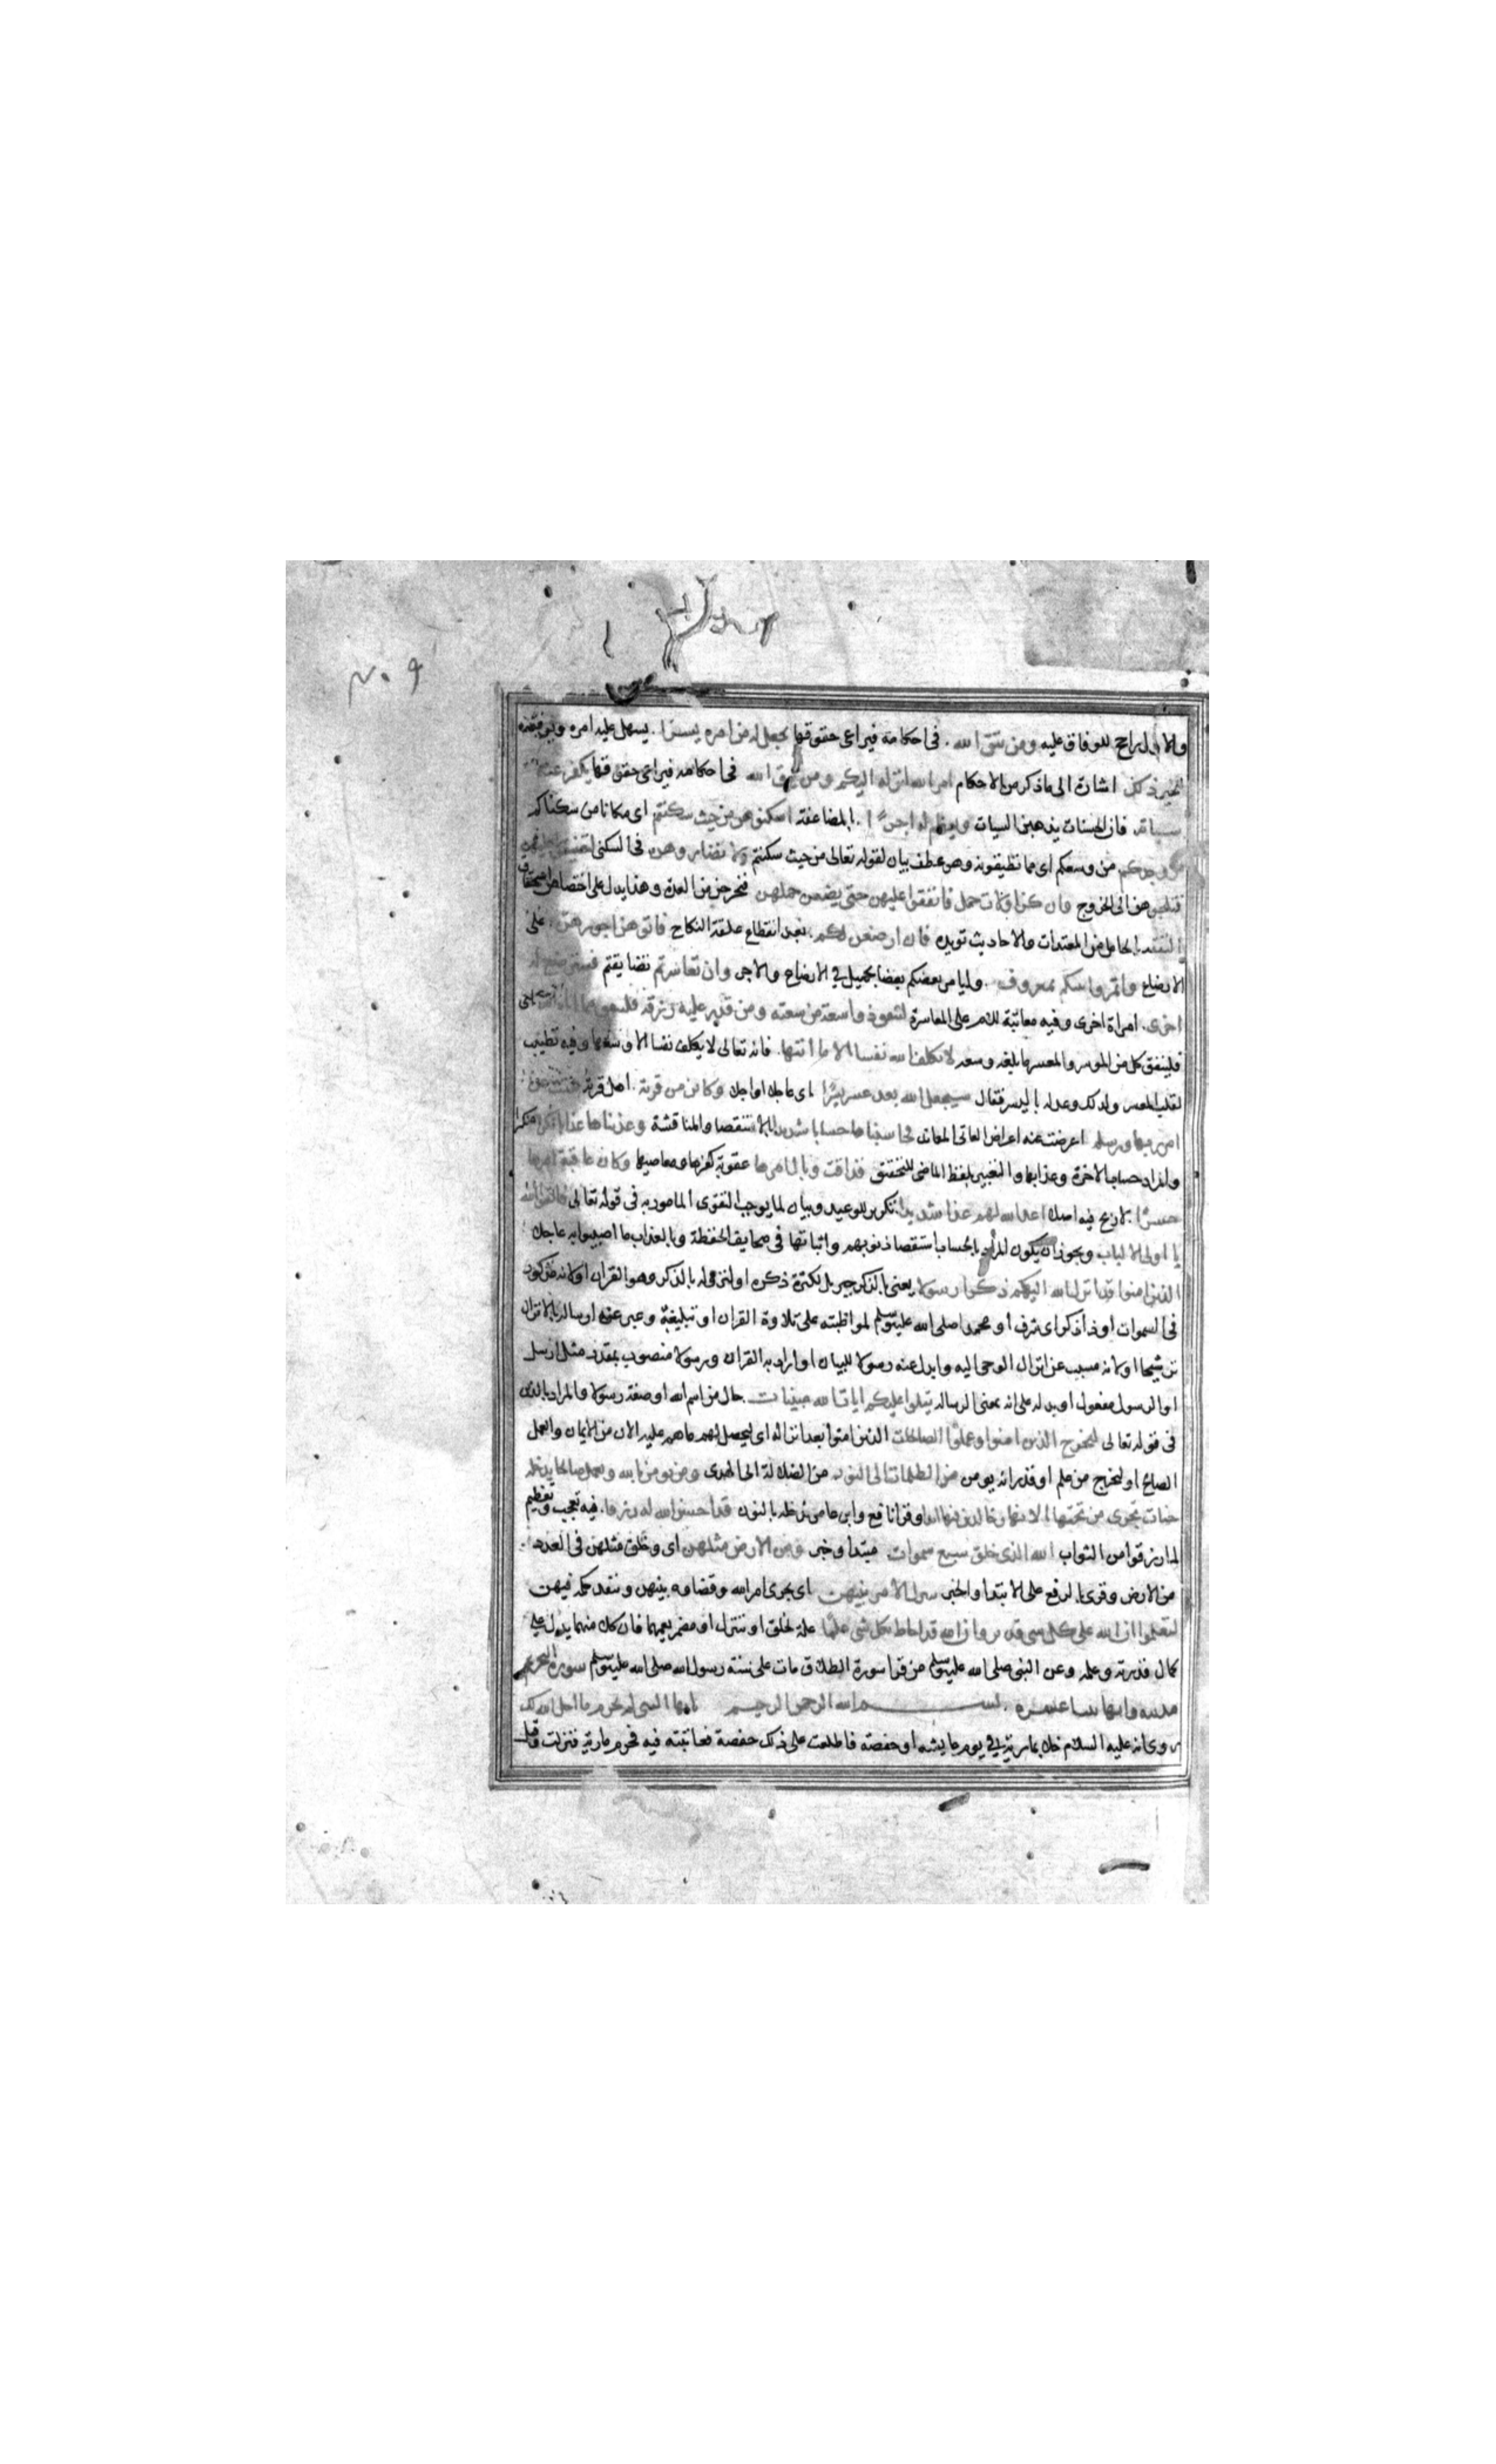 والاول راجح للوفاق عليه ومن يتق الله . في احكامه فيراعي حقوقها يجعل له من امره يسرا . يسهل عليه امره ويوفقه
للخير ذلك اشارة الى ما ذكر من الاحكام امر الله انزله اليكم ومن يتق الله في احكامه فيراعي حقوقها يكفر عنه
سياته فان الحسنات يذهبن السيات ويعظم له اجرا . بالمضاعفة اسكنوهن من حيث سكنتم اى مكانا من سكناكم
من وجدكم من وسعكم اى مما تطيقونه وهو عطف بيان لقوله تعالى من حيث سكنتم ولا تضاروهن في السكنى لتضيقوا عليهن
فتلجوهن الى الخروج فان كن اولات حمل فانفقوا عليهن حتى يضعن حملهن فخرجن من العدة وهذا يدل على اختصاص استحقاق
النفقة بالحامل من المعتدات والاحاديث تويده فان ارضعن لكم . بعد انقطاع علقة النكاح فاتوهن اجورهن . على
الارضاع واتمروا بينكم بمعروف . وليامر بعضكم بعضا بجميل في الارضاع والاجر وان تعاسرتم تضايقتم فسترضع له
اخرى . امراة اخرى وفيه معاتبة للام على المعاسرة لينفق ذو سعة من سعته ومن قدر عليه رزقه فلينفق مما اتاه الله اى
فلينفق كل من الموسر والمعسر ما بلغه وسعه لا يكلف الله نفسا الا ما اتيها . فانه تعالى لا يكلف نفسا الا وسعها وفيه تطييب
لقلب المعسر ولذلك وعد له باليسر فقال سيجعل الله بعد عسر يسرا اى عاجلا او اجلا وكاين من قرية . اهل قرية عتت عن
امر ربها ورسله اعرضت عنه اعراض العاتى المعاند فحاسبناها حسابا شديدا بالاستقصا والمناقشة وعذبناها عذابا نكرا منكرا
والمراد حساب الاخرة وعذابها والتعبير بلفظ الماضى للتحقيق فذاقت وبال امرها عقوبة كفرها ومعاصيها وكان عاقبة امرها
خسرا . لا ربح فيه اصلا اعد الله لهم عذابا شديدا . تكرير للوعيد وبيان لما يوجب التقوى المامور به في قوله تعالى فاتقوا الله
يا اولى الالباب ويجوز ان يكون المراد بالحساب استقصا ذنوبهم واثباتها في صحايف الحفظة وبالعذاب ما اصيبوا به عاجلا
الذين امنوا قد انزل الله اليكم ذكرا رسولا يعنى بالذكر جبريل لكثرة ذكره او لنزوله بالذكر وهو القران او لانه مذكور
في السموات او ذا ذكر اى شرف او محمدا صلى الله عليه وسلم لمواظبته على تلاوة القران او تبليغه وعبر عنه ارساله بالانزال
ترشيحا او لانه مسبب عن انزال الوحى اليه وابدل عنه رسولا للبيان او اراد به القران ورسولا منصوب بمقدر مثل ارسل
او الرسول مفعول او بدله على انه بمعنى الرسالة يتلوا عليكم ايات الله مبينات . حال من اسم الله او صفة رسولا والمراد بالذين
في قوله تعالى ليخرج الذين امنوا وعملوا الصالحات الذين امنوا بعد انزاله اى ليحصل لهم ما هم عليه الان من الايمان والعمل
الصالح او ليخرج من علم او قدر انه يومن من الظلمات الى النور من الضلالة الى الهدى ومن يومن بالله ويعمل صالحا يدخله
جنات تجرى من تحتها الانهار خالدين فيها ابدا وقرا نافع وابن عامر ندخله بالنون قد احسن الله له رزقا . فيه تعجب وتعظيم
لما رزقوا من الثواب الله الذى خلق سبع سموات مبتدا وخبر ومن الارض مثلهن اى وخلق مثلهن في العدد
من الارض وقرى بالرفع على الابتدا والخبر يتنزل الامر بينهن اى يجرى امر الله وقضاوه بينهن وينفذ حكمه فيهن
لتعلموا ان الله على كل شى قدير وان الله قد احاط بكل شى علما علة لخلق او يتنزل او مضمر يعمهما فان كلا منهما يدل على
كمال قدرته وعلمه وعن النبى صلى الله عليه وسلم من قرا سورة الطلاق مات على سنة رسول الله صلى الله عليه وسلم سورة التحريم
مدنية وايها اثنا عشرة . بسم الله الرحمن الرحيم يا ايها النبى لم تحرم ما احل الله لك
روى انه عليه السلام خلا بمارية في يوم عايشة او حفصة فاطلعت على ذلك حفصة فعاتبته فيه فحرم مارية فنزلت وقيل